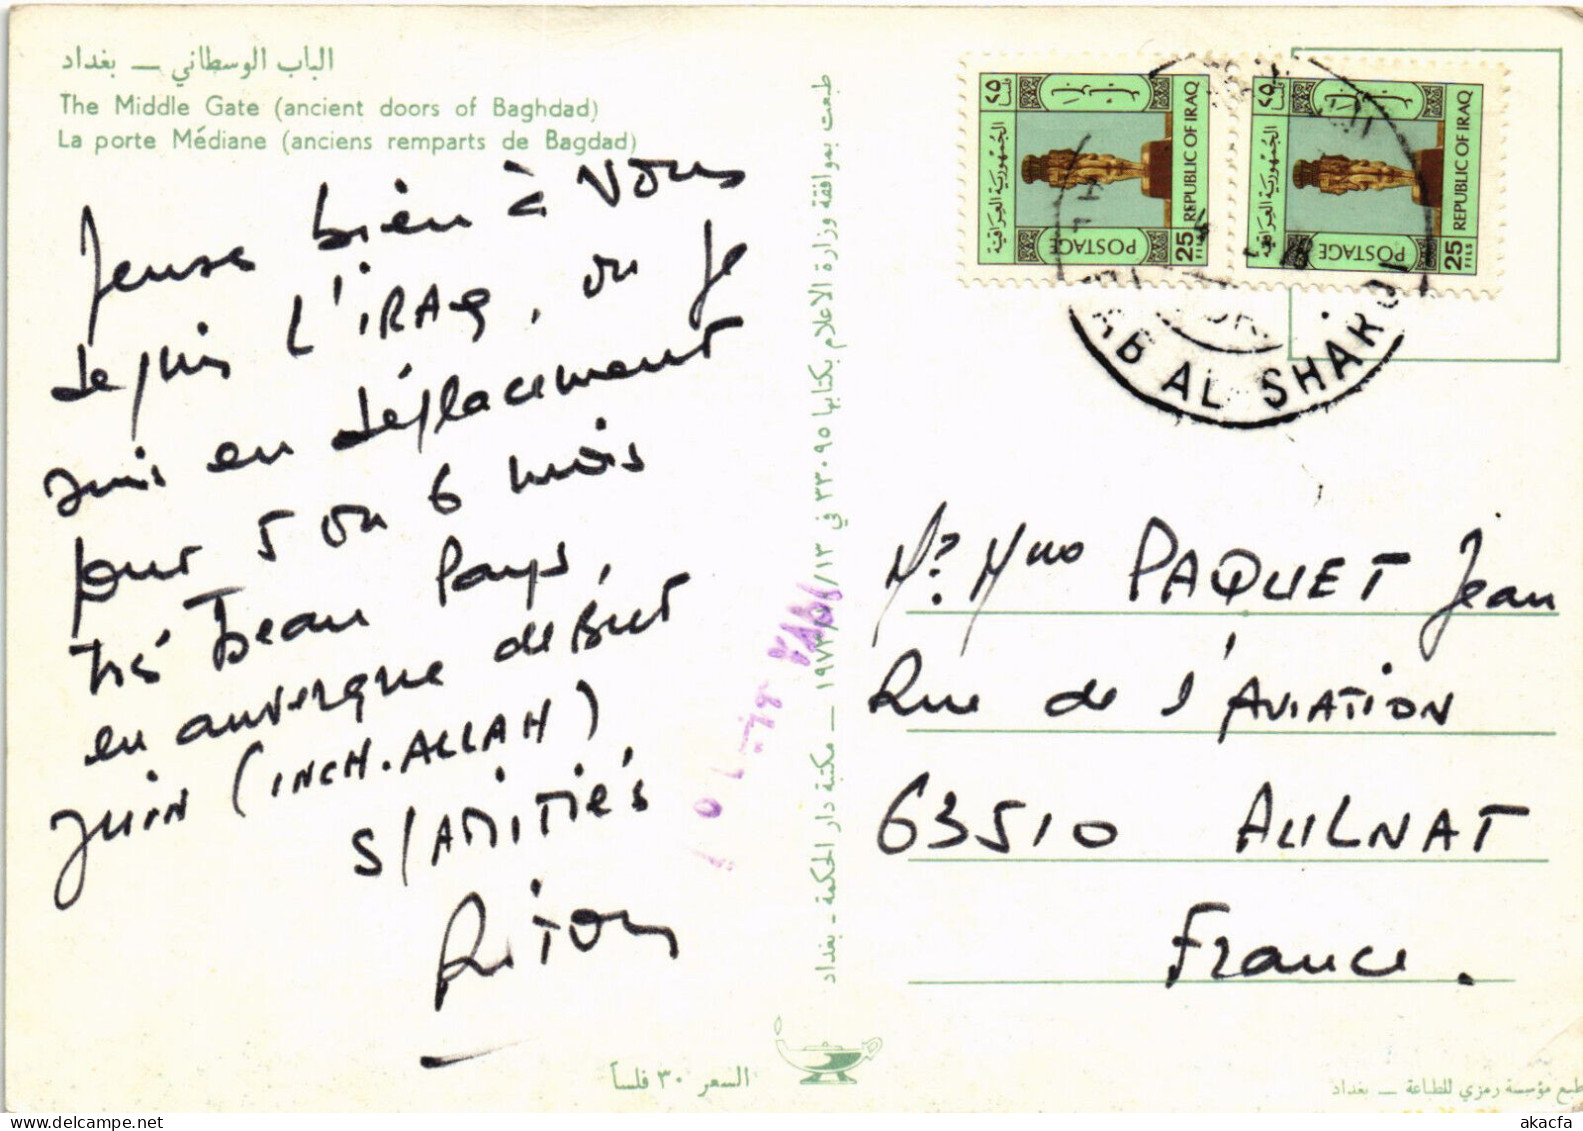 الباب الوسطاني — بغداد
The Middle Gate (ancient doors of Baghdad)
La porte Médiane (anciens remparts de Bagdad)
Jense bien à vous
depuis L'iRAQ, ou je
suis en déplacement
pour 5 ou 6 mois
très beau Pays,
en auvergne deBut
JuiN (iNCH.ALLAH)
S/AMiTiés
RiTON
السعر ٣٠ فلساً
طبعت بموافقة وزارة الاعلام بكتابها ٣٣٠٩٥ في ١٣/
١٩٧٣ — مكتبة دار الحكمة - بغداد
الجمهورية العراقية
٢٥ فلسا
POSTAGE
25 FILS
REPUBLIC OF IRAQ
الجمهورية العراقية
٢٥ فلسا
POSTAGE
25 FILS
REPUBLIC OF IRAQ
AB AL SHARQI
Mr Mme PAQUET Jean
Rue de l'AViATiON
63510 AULNAT
France.
طبع مؤسسة رمزي للطباعة — بغداد
akacfa